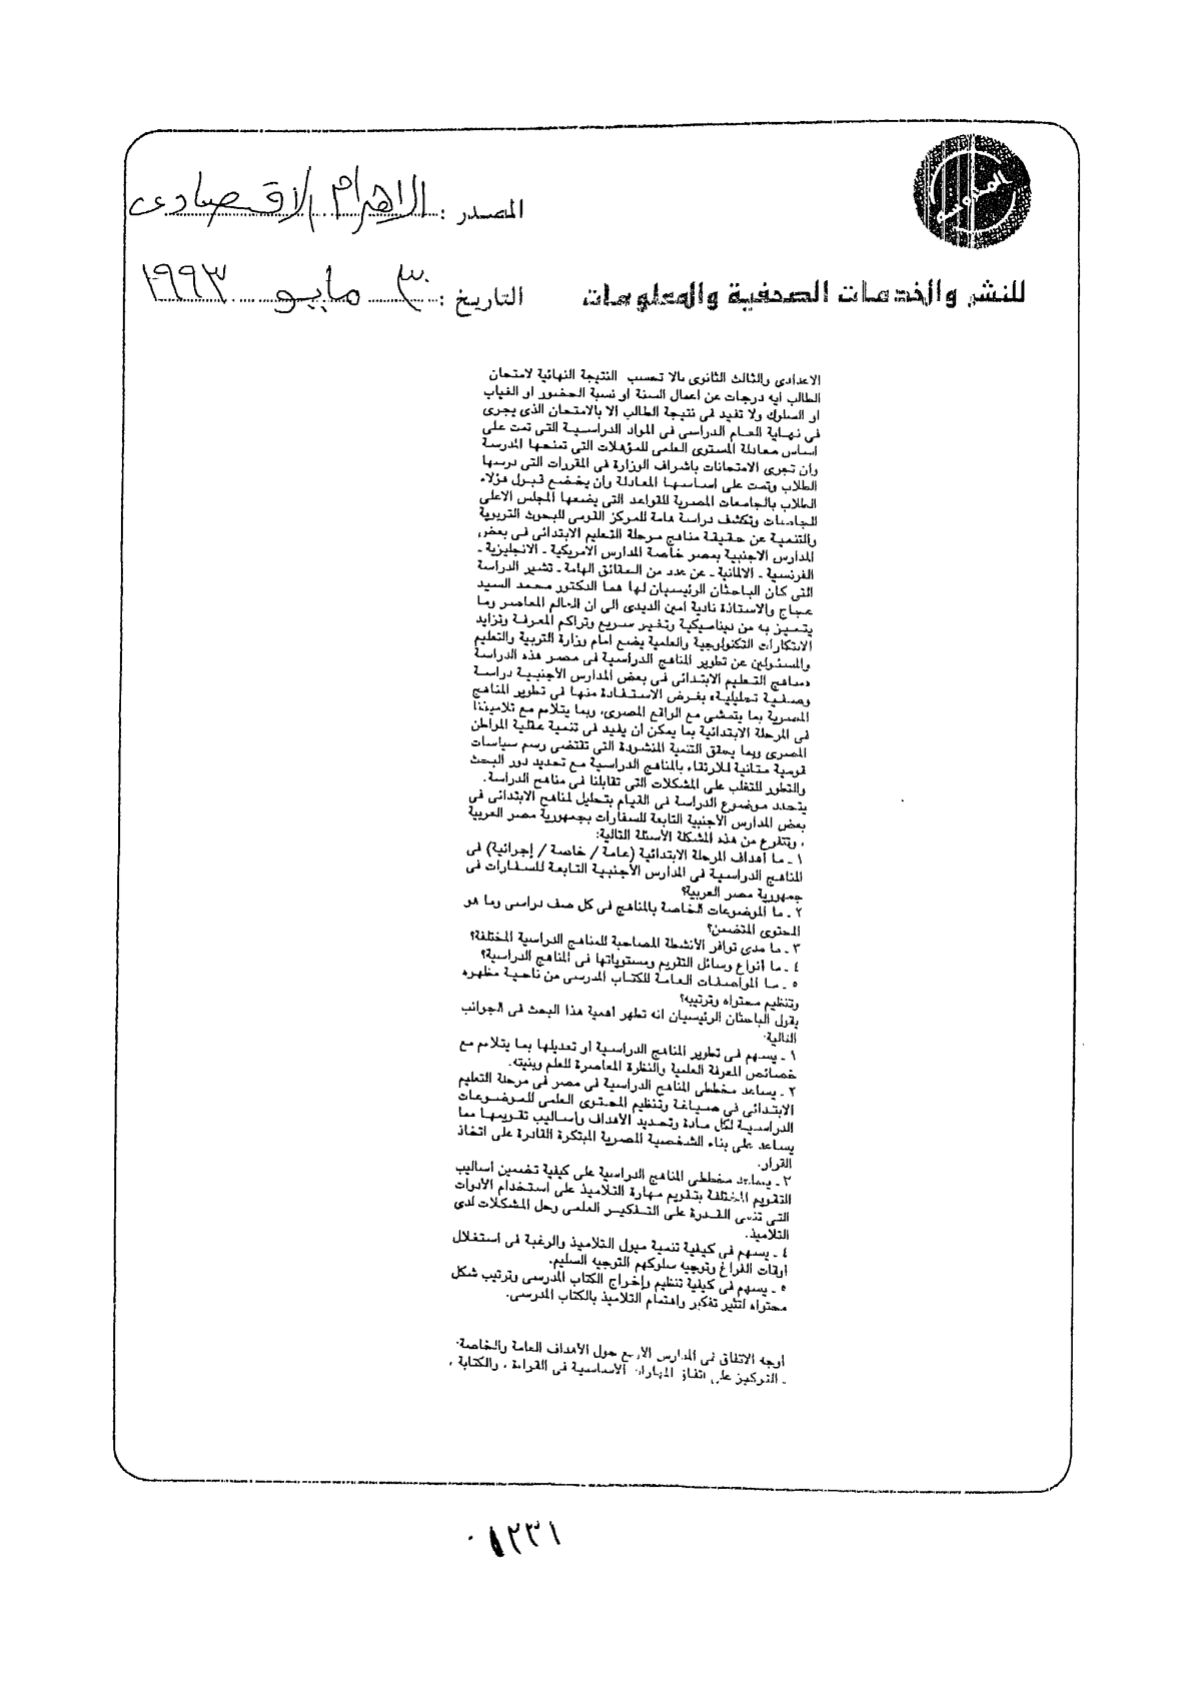 المدونة
المصدر : الاهرام الاقتصادى
للنشر والخدمات الصحفية والمعلومات
التاريخ : ٣٠ مايو ١٩٩٣
الاعدادى والثالث الثانوى بالا تحسب النتيجة النهائية لامتحان
الطالب ايه درجات عن اعمال السنة او نسبة الحضور او الغياب
او السلوك ولا تفيد فى نتيجة الطالب الا بالامتحان الذى يجرى
فى نهاية العام الدراسى فى المواد الدراسية التى تمت على
اساس معادلة المستوى العلمى للمؤهلات التى تمنحها المدرسة
وان تجرى الامتحانات باشراف الوزارة فى المقررات التى درسها
الطلاب وتمت على اساسها المعادلة وان يخضع قبول هؤلاء
الطلاب بالجامعات المصرية للقواعد التى يضعها المجلس الاعلى
للجامعات وتكشف دراسة هامة للمركز القومى للبحوث التربوية
والتنمية عن حقيقة مناهج مرحلة التعليم الابتدائى فى بعض
المدارس الاجنبية بمصر خاصة المدارس الامريكية ـ الانجليزية ـ
الفرنسية ـ الالمانية ـ عن عدد من الحقائق الهامة ـ تشير الدراسة
التى كان الباحثان الرئيسيان لها هما الدكتور محمد السيد
حجاج والاستاذة نادية امين الديدى الى ان العالم المعاصر وما
يتميز به من ديناميكية وتغير سريع وتراكم المعرفة وتزايد
الابتكارات التكنولوجية والعلمية يضع امام وزارة التربية والتعليم
والمسئولين عن تطوير المناهج الدراسية فى مصر هذه الدراسة
«مناهج التعليم الابتدائى فى بعض المدارس الأجنبية دراسة
وصفية تحليلية» بغرض الاستفادة منها فى تطوير المناهج
المصرية بما يتمشى مع الواقع المصرى، وبما يتلاءم مع تلاميذنا
فى المرحلة الابتدائية بما يمكن ان يفيد فى تنمية عقلية المواطن
المصرى وبما يحقق التنمية المنشودة التى تقتضى رسم سياسات
قومية متانية للارتقاء بالمناهج الدراسية مع تحديد دور البحث
والتطور للتغلب على المشكلات التى تقابلنا فى مناهج الدراسة.
يتحدد موضوع الدراسة فى القيام بتحليل لمناهج الابتدائى فى
بعض المدارس الأجنبية التابعة للسفارات بجمهورية مصر العربية
، ويتفرع من هذه المشكلة الأسئلة التالية:
١ ـ ما أهداف المرحلة الابتدائية (عامة / خاصة / إجرائية) فى
المناهج الدراسية فى المدارس الأجنبية التابعة للسفارات فى
جمهورية مصر العربية؟
٢ ـ ما الموضوعات الخاصة بالمناهج فى كل صف دراسى وما هو
المحتوى المتضمن؟
٣ ـ ما مدى توافر الأنشطة المصاحبة للمناهج الدراسية المختلفة؟
٤ ـ ما أنواع وسائل التقويم ومستوياتها فى المناهج الدراسية؟
٥ ـ ما المواصفات العامة للكتاب المدرسى من ناحية مظهره
وتنظيم محتواه وترتيبه؟
يقول الباحثان الرئيسيان انه تظهر اهمية هذا البحث فى الجوانب
التالية:
١ ـ يسهم فى تطوير المناهج الدراسية او تعديلها بما يتلاءم مع
خصائص المعرفة العلمية والنظرة المعاصرة للعلم وبنيته.
٢ ـ يساعد مخططى المناهج الدراسية فى مصر فى مرحلة التعليم
الابتدائى فى صياغة وتنظيم المحتوى العلمى للموضوعات
الدراسية لكل مادة وتحديد الأهداف وأساليب تقويمها مما
يساعد على بناء الشخصية المصرية المبتكرة القادرة على اتخاذ
القرار.
٣ ـ يساعد مخططى المناهج الدراسية على كيفية تضمين اساليب
التقويم المختلفة بتقويم مهارة التلاميذ على استخدام الأدوات
التى تنمى القدرة على التفكير العلمى وحل المشكلات لدى
التلاميذ.
٤ ـ يسهم فى كيفية تنمية ميول التلاميذ والرغبة فى استغلال
أوقات الفراغ وتوجيه سلوكهم التوجيه السليم.
٥ ـ يسهم فى كيفية تنظيم وإخراج الكتاب المدرسى وترتيب شكل
محتواه لتثير تفكير واهتمام التلاميذ بالكتاب المدرسى.
أوجه الاتفاق فى المدارس الأربع حول الأهداف العامة والخاصة:
ـ التركيز على اتفاق المهارات الأساسية فى القراءة ، والكتابة ،
٠١٢٣١